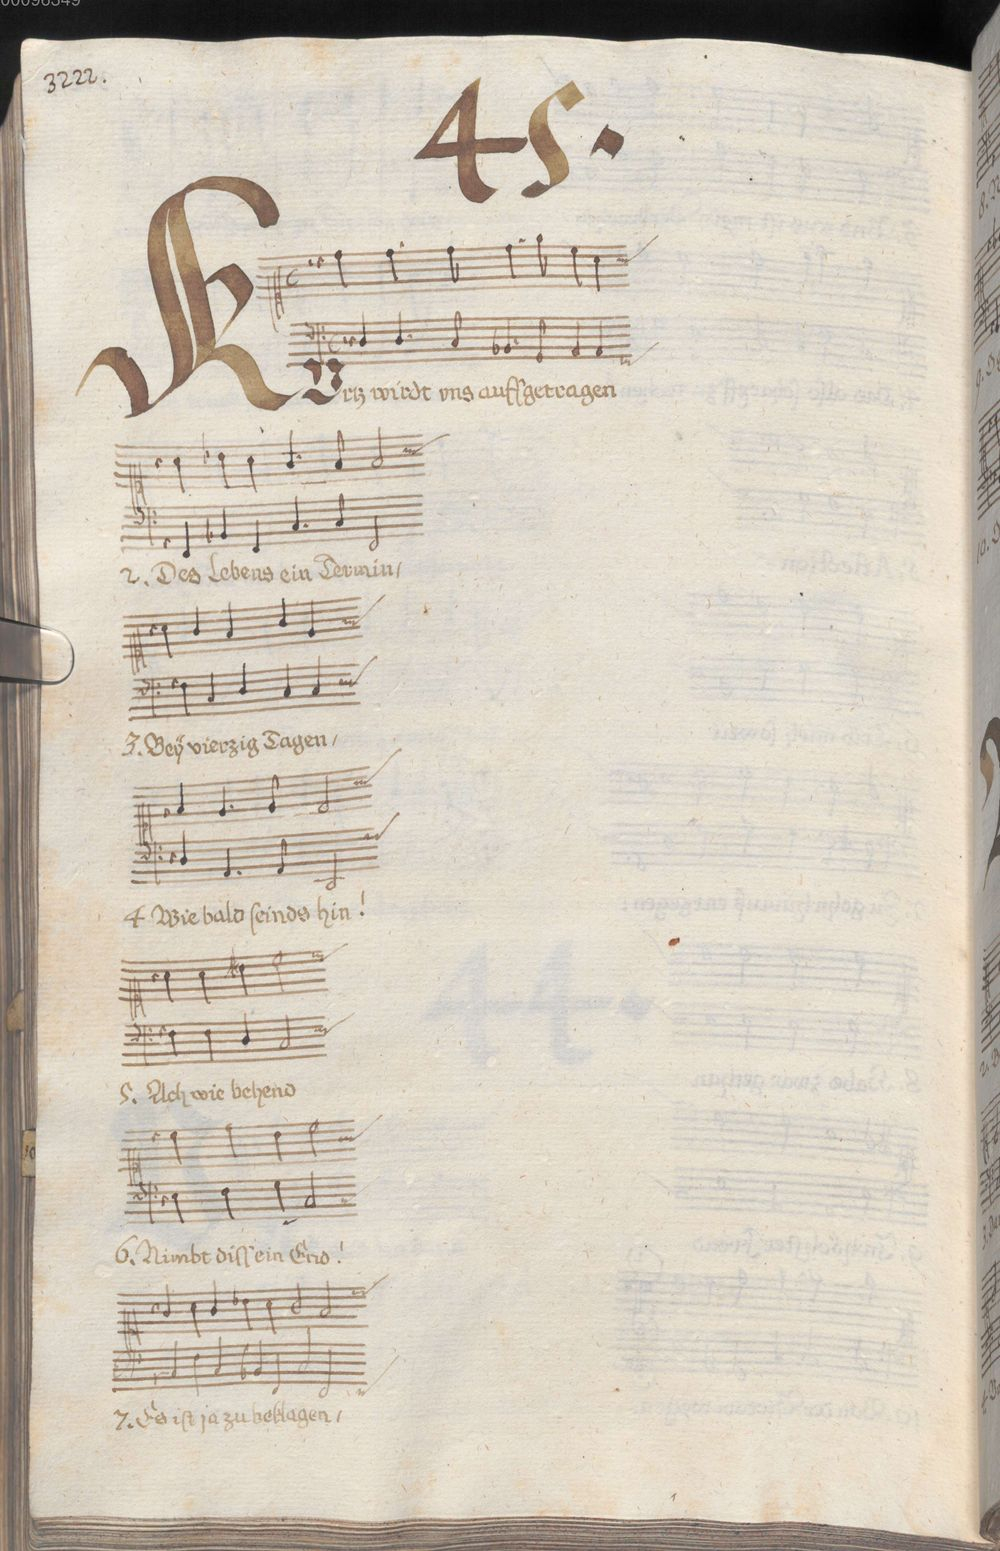 00096349
3222.
45.
KUrtz wirdt vns auffgetragen
2. Des Lebens ein Termin/
3. Beÿ vierzig Tagen/
4. Wie bald seinds hin!
5. Ach wie behend
6. Nimbt diss ein End!
7. Es ist ja zu beklagen/